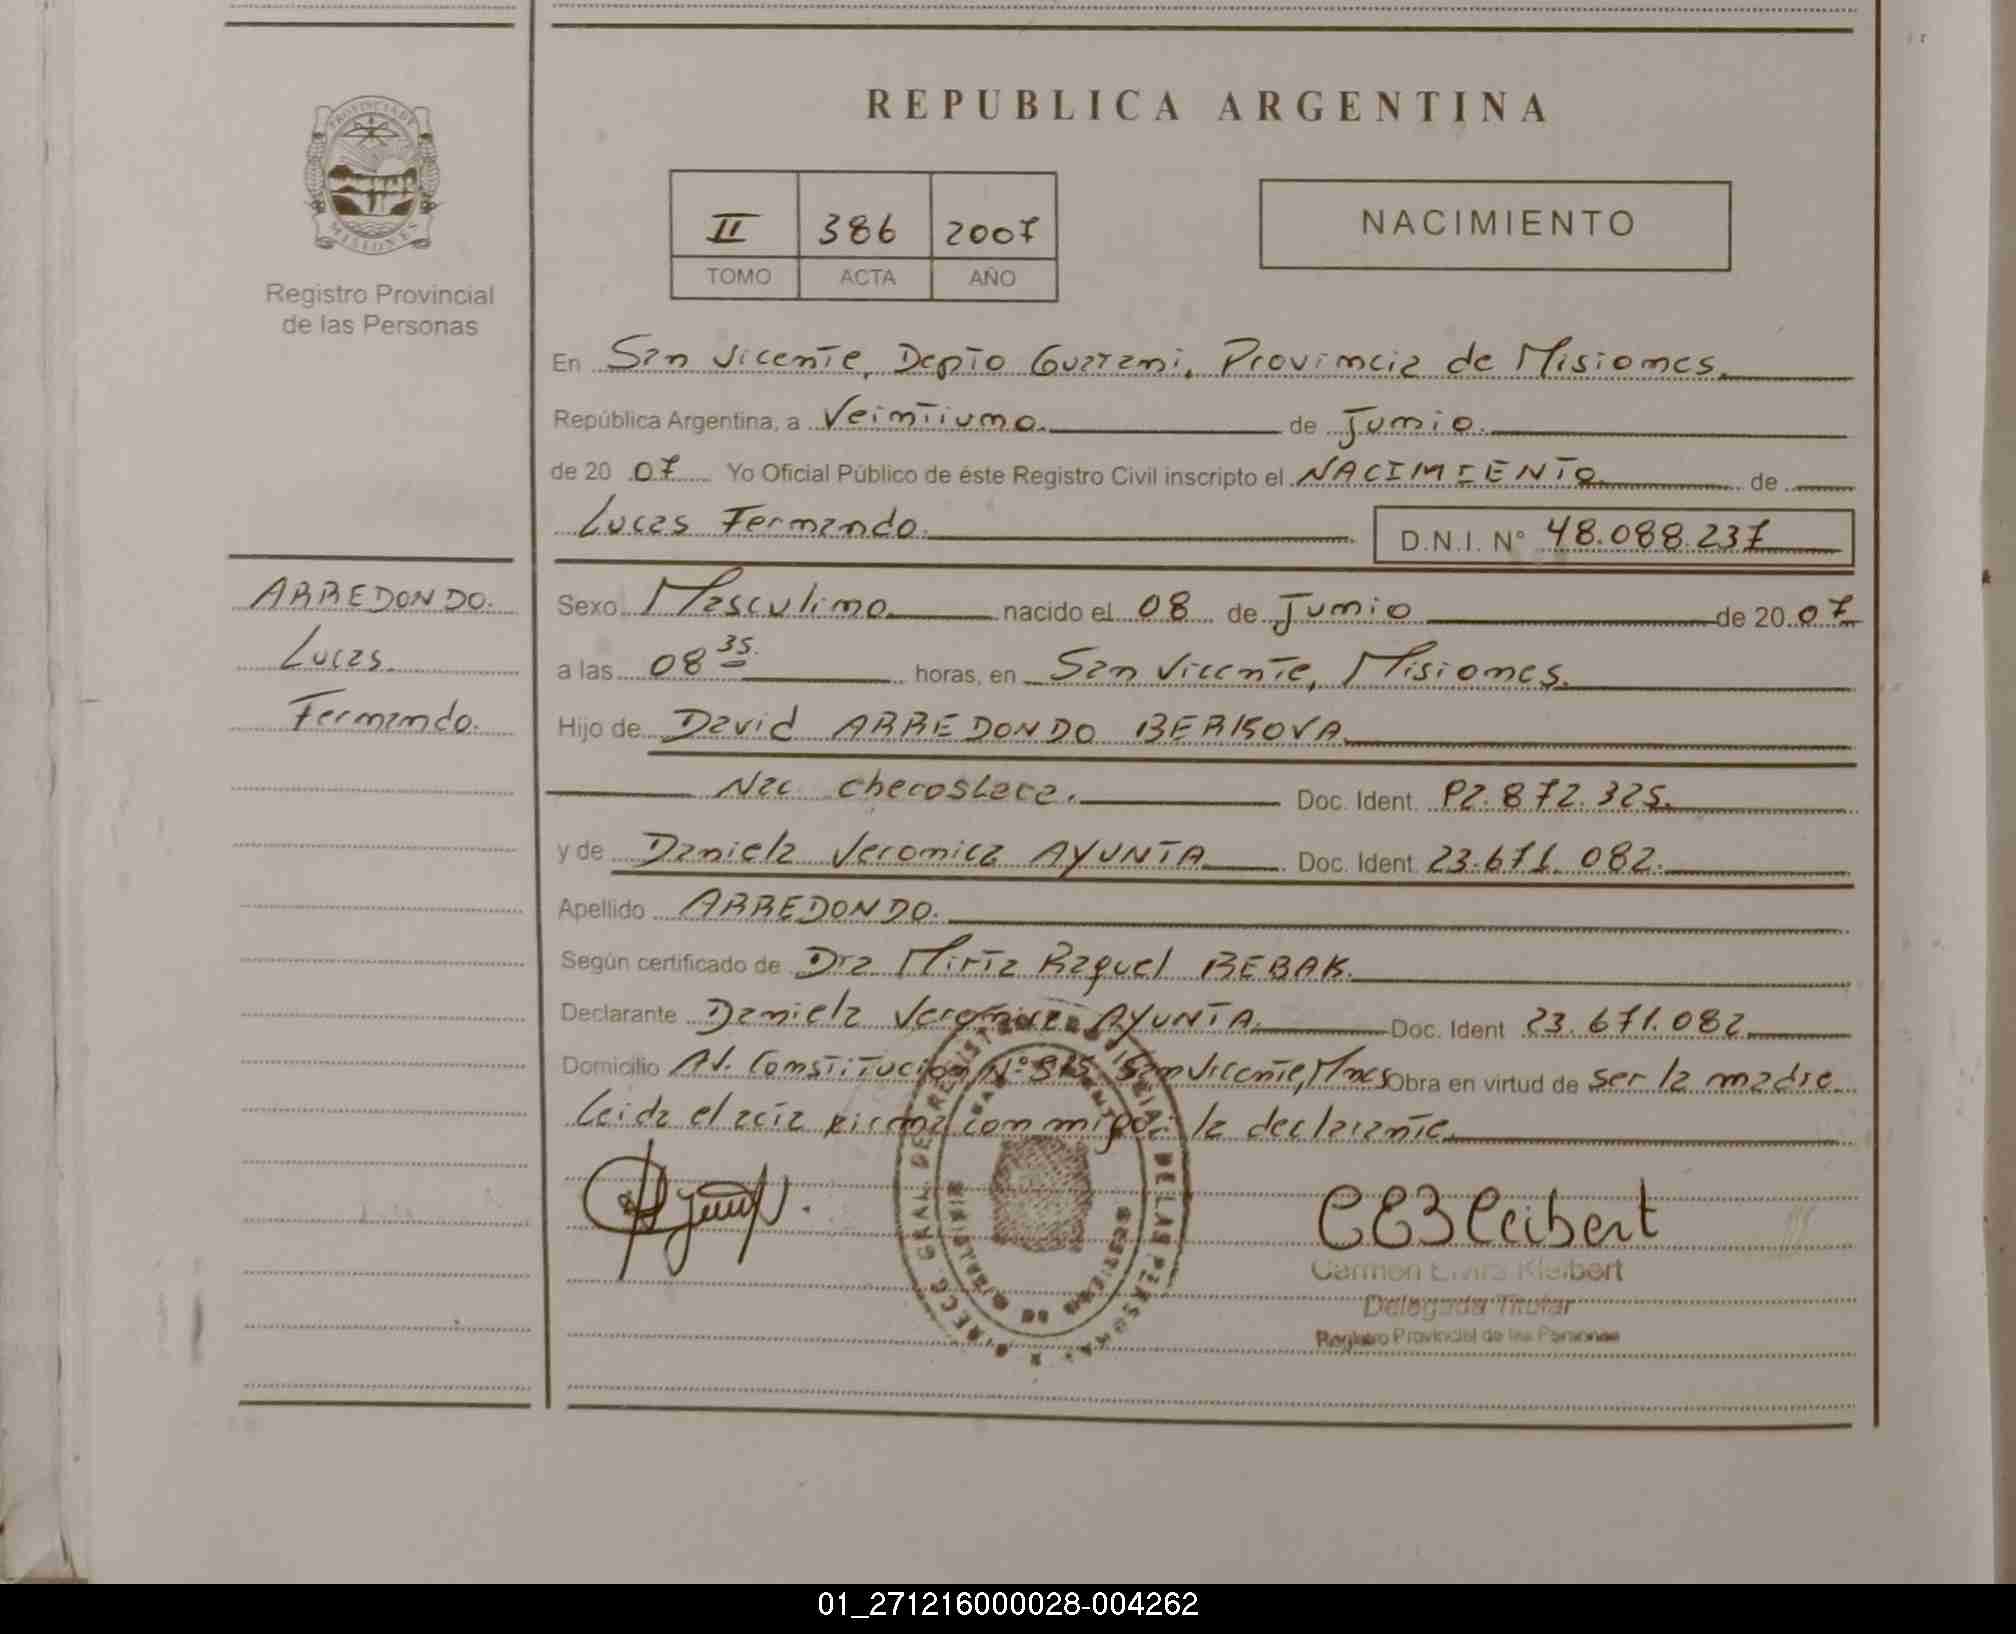 REPUBLICA ARGENTINA
PROVINCIA DE
MISIONES
Registro Provincial
de las Personas
II 386 2007
TOMO ACTA AÑO
NACIMIENTO
En San Vicente, Depto Guarani, Provincia de Misiones.
República Argentina, a Veintiuno. de Junio.
de 20 07 Yo Oficial Público de éste Registro Civil inscripto el NACIMIENTO de
Lucas Fernando. D.N.I. N° 48.088.237
ARREDONDO.
Lucas
Fernando.
Sexo Masculino nacido el 08 de Junio de 20 07
a las 08 35. horas, en San Vicente, Misiones.
Hijo de David ARREDONDO BERKOVA
Nac checoslaca. Doc. Ident. P2.872.325.
y de Daniela Veronica AYUNTA Doc. Ident. 23.671.082.
Apellido ARREDONDO.
Según certificado de Dra Mirta Raquel BEBAK.
Declarante Daniela Veronica AYUNTA. Doc. Ident 23.671.082.
Domicilio Av. Constitución N° San Vicente, Mnes Obra en virtud de ser la madre
Leida el acta firma con migo la declarante.
CEBCleibert
Carmen Elvira Kleibert
Delegada Titular
Registro Provincial de las Personas
01_271216000028-004262